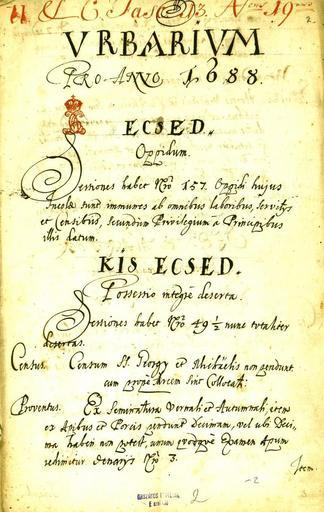 VRBARIVM
PRO ANNO 1688.
ECSED.
Oppidum.
Sessiones habet Nro 157. Oppidi hujus
Incolae sunt immunes ab omnibus laboribus, servitijs
et Censibus, secundum Privilegium à Principibus
illis datum.
KIS ECSED.
Possessio integrè deserta.
Sessiones habet Nro 49 1/2 nunc totaliter
desertas.
Census. Censum SS. Georgy et Michaelis non pendunt
cum prope Arcem sint Collocati:
Proventus. Ex Seminatura Vernali et Autumnali, item
ex Apibus et Porcis pendunt Decimam, vel ubi Deci-
ma haberi non potest, unum quodque Examen Apum
redimitur denarijs Nro 3.
Item
2